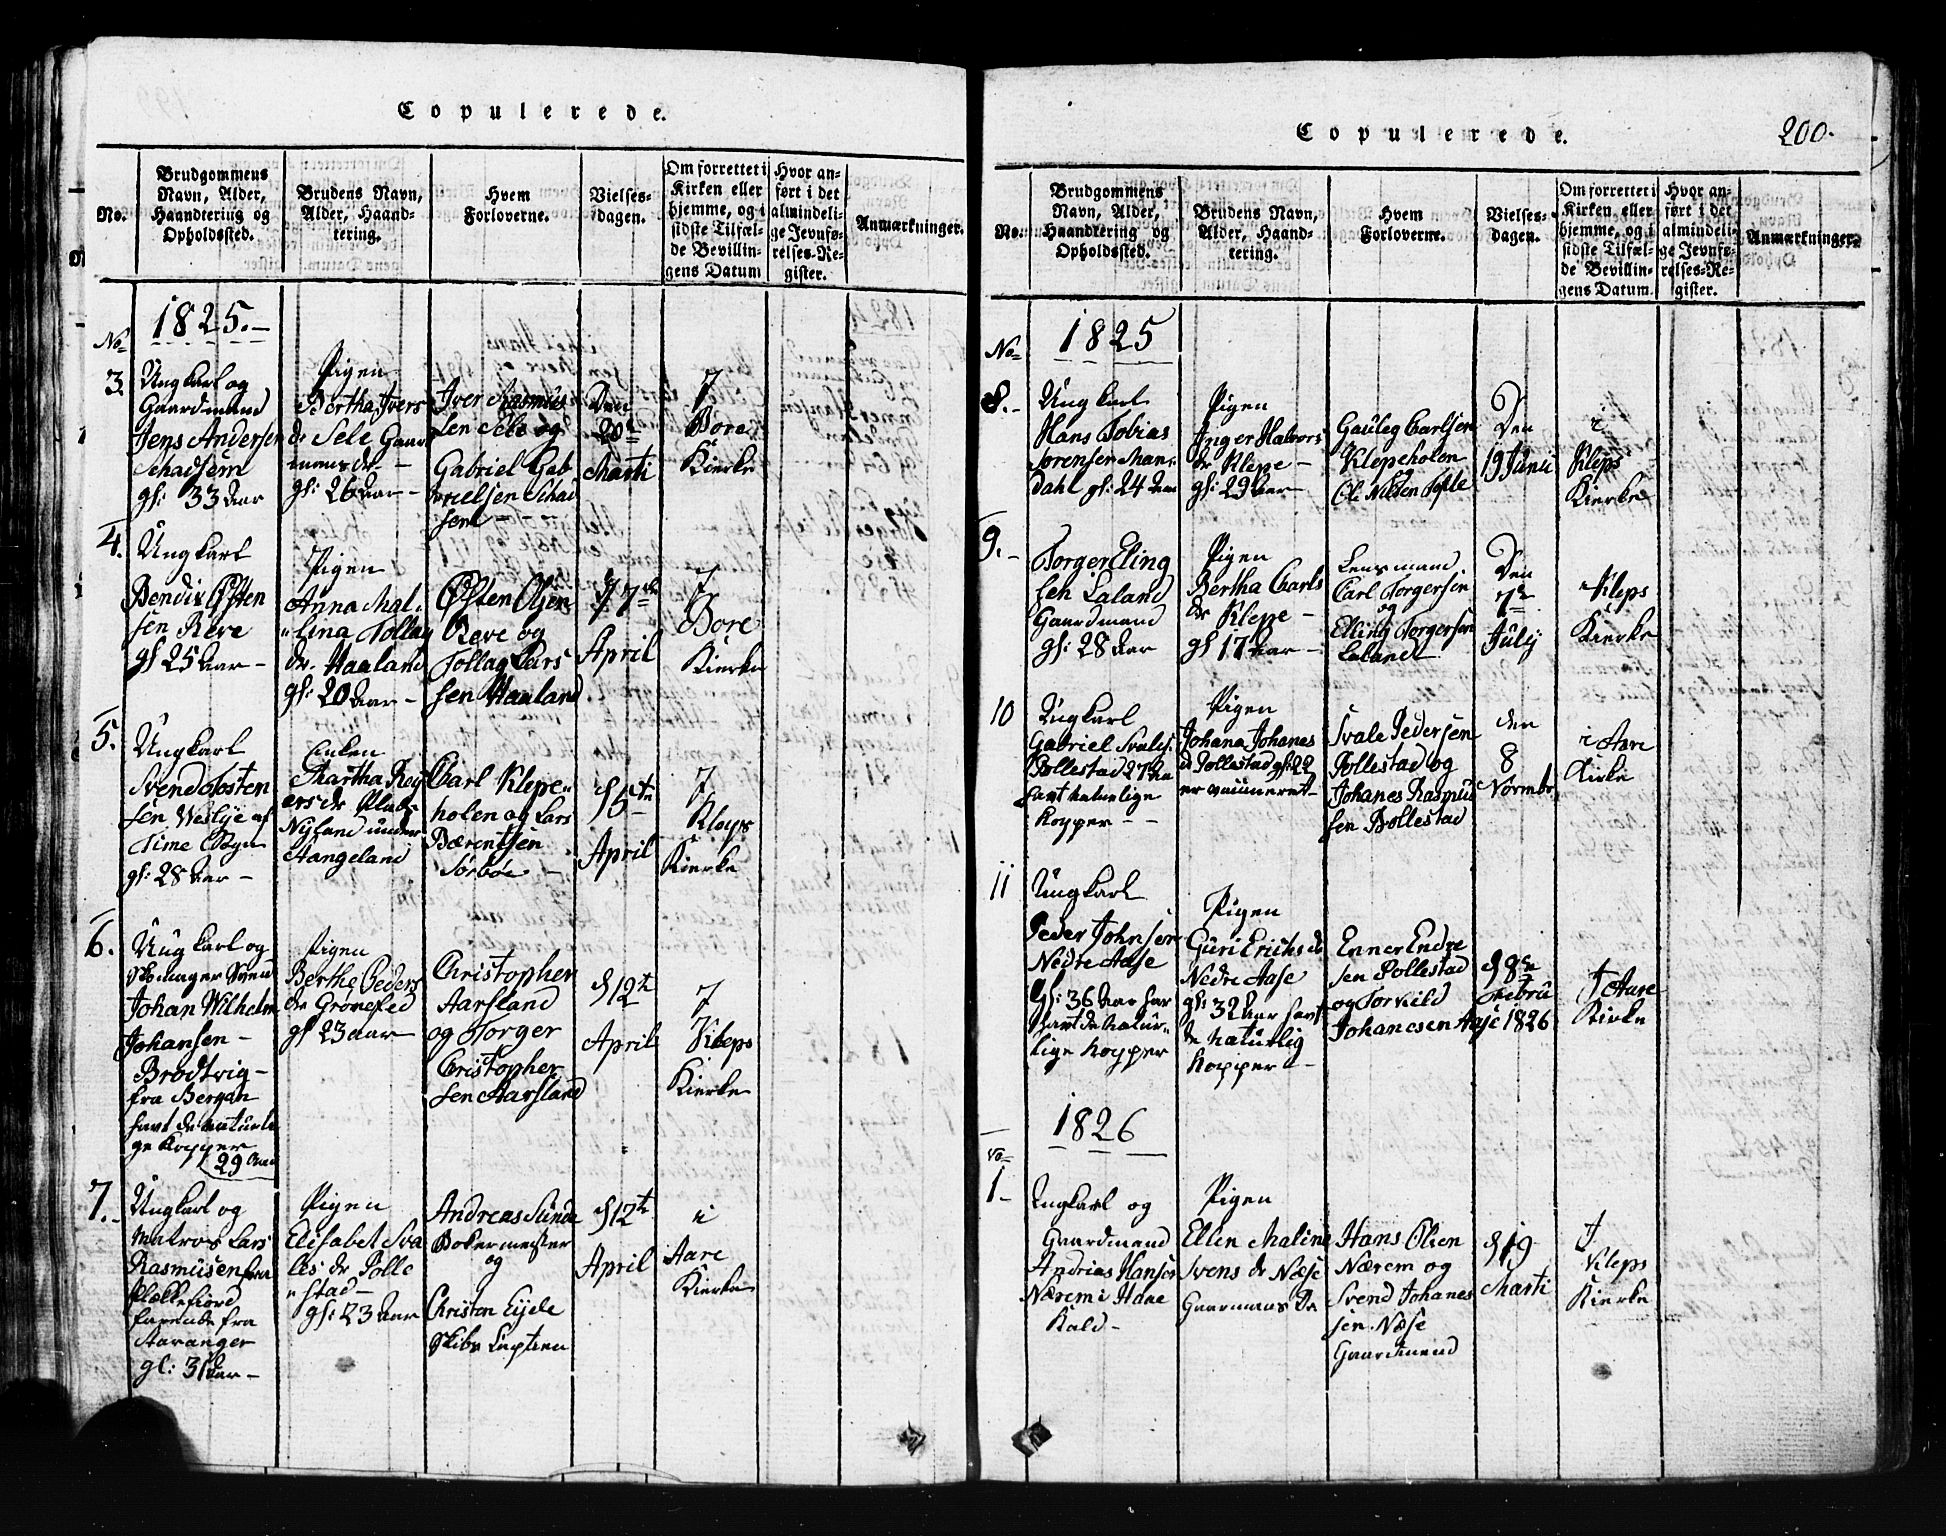 Copulerede.
No.
Brudgommens
Navn, Alder,
Haandtering og
Opholdssted.
Brudens Navn,
Alder, Haand-
tering.
Hvem
Forloverne.
Vielses-
dagen.
Om forrettet i
Kirken eller
hjemme, og i
sidste Tilfæl-
de Bevillin-
gens Datum
Hvor an-
ført i det
almindeli-
ge Jevnfø-
relses-Re-
gister.
Anmærkninger.
1825.
No
3.
Ungkarl og
Gaardmand
Jens Andersen
Schadsem
gl: 33 Aar
Pigen
Bertha Ivers
dr Sele Gaar
mans dr
gl: 26 Aar
Iver Rasmus
sen Sele og
Gabriel Gab
rielsen Schad
sem
Den
20de
Marti
I
Bore
Kierke
4.
Ungkarl
Bendix Østen
sen Reve
gl 25 Aar
Pigen
Anna Mal
lina Tollag
dr. Haaland
gl: 20 Aar
Østen Olsen
Reve og
Tollag Lars
sen Haaland
d. 7de
April
I
Bore
Kierke
5.
Ungkarl
Svend Tosten
sen Veslye af
Time Sogn
gl: 28 Aar
Enken
Martha Reg
ers dr
Nyland under
Stangeland
Carl Klepe
holen og Lars
Bærentsen
Sørbøe
d 5te
April
I
Kleps
Kierke
6.
Ungkarl og
Skomager Svend
Johan Wilhelm
Johansen
Brodtvig
fra Bergen
havt de naturli
ge Kopper
29 Aar
Pigen
Berthe Peders
dr Grønested
gl 23 Aar
Christopher
Aarsland
og Torger
Christopher
sen Aarsland
d 12t
April
I
Kleps
Kierke
7.
Ungkarl og
Matros Lars
Rasmusen fra
Flekkefiord
farende fra
Stavanger
gl: 31 Aar
Pigen
Elisabet Sva
les dr Polle
stad
gl: 23 Aar
Andreas Sunde
Bokermester
og
Christen Eyele
Skibs Captien
d 12t
April
i
Aare
Kierke
Copulerede.
200.
No.
Brudgommens
Navn, Alder,
Haandtering og
Opholdssted.
Brudens Navn,
Alder, Haand-
tering.
Hvem
Forloverne.
Vielses-
dagen.
Om forrettet i
Kirken eller
hjemme, og i
sidste Tilfæl-
de Bevillin-
gens Datum.
Hvor an-
ført i det
almindeli-
ge Jevnfø-
relses-Re-
gister.
Anmærkninger.
1825
No
8.
Ungkarl
Hans Tobias
Sørensen Man
dahl gl: 24 Aar
Pigen
Inger Halvors
dr Klepe
gl: 29 Aar
Gauleg Carlsen
Klepeholen
Ole Nilsen Tofte
Den
19 Junii
i
Kleps
Kierke
9.
Torger Eling
sen Laland
Gaardmand
gl: 28 Aar
Pigen
Bertha Carls
dr Klepe
gl 17 Aar
Lensmand
Carl Torgersen
og
Elling Torgersen
Laland
Den
7de
July
Kleps
Kierke
10
Ungkarl
Gabriel Svales.
Pollestad 27 Aa
havt naturlige
Kopper
Pigen
Johana Johanes
dr Pollestad gl: 22
er vaccineret
Svale Pedersen
Pollestad og
Johanes Rasmus
sen Bollestad
den
8
Novmbr
i Aare
Kirke
11
Ungkarl
Peder Johnsen
Nedre Aase
Gl: 36 Aar har
havt de natur
lige Kopper
Pigen
Guri Erichs dr
Nedre Aase
gl: 32 Aar havt
de naturlig
Kopper
Enner Endre
sen Pollestad
og Torkild
Johanesen Aase
d 8de
Febru
1826
I Aare
Kirke
1826
No
1
Ungkarl og
Gaardmand
Andrias Hansen
Nærem i Haae
Kald
Pigen
Ellen Maline
Svens dr Næse
Gaarmans Dr
Hans Olsen
Nærem og
Svend Johanes
sen Næse
Gaardmend
d 19
Marti
I
Kleps
Kierke